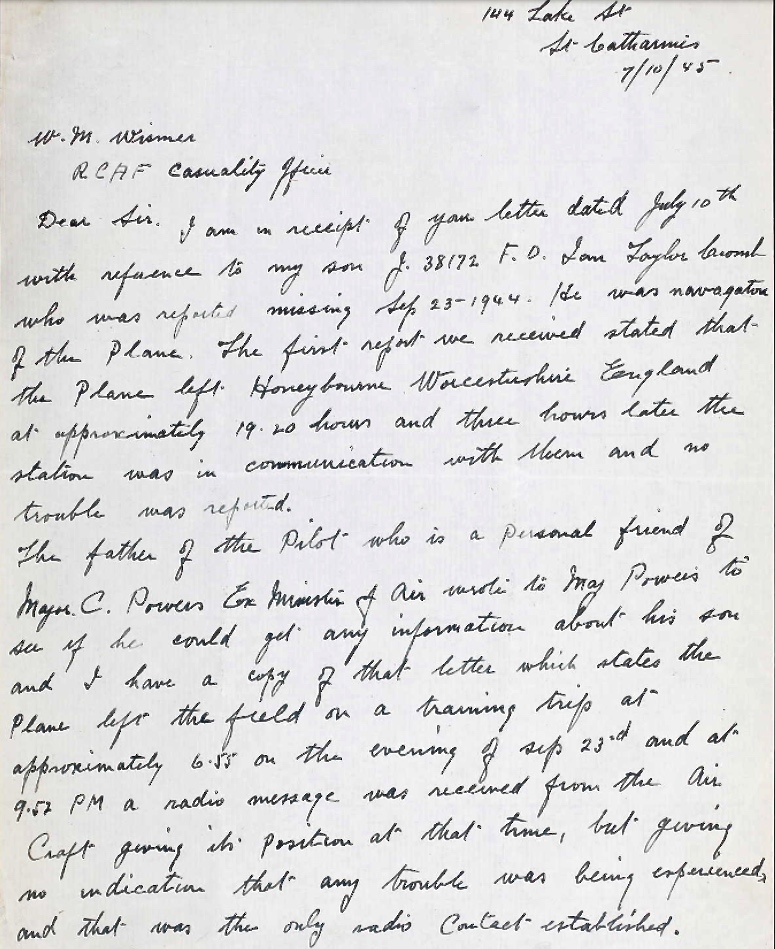 144 Lake St
St Catharines
7/10/45
W. M. Wismer
RCAF Casuality Officer
Dear Sir. I am in receipt of your letter dated July 10th
with refuence to my son J. 38172 F.O. Ian Taylor Cromb
who was reported missing Sep 23-1944. He was navagator
of the Plane. The first report we received stated that
the Plane left Honeybourne Worcestershire England
at approximately 19.20 hours and three hours later the
station was in communication with them and no
trouble was reported.
The father of the Pilot who is a personal friend of
Major. C. Powers Ex Minister of Air wrote to Maj Powers to
see if he could get any information about his son
and I have a copy of that letter which states the
Plane left the field on a training trip at
approximately 6.55 on the evening of Sep 23rd and at
9.52 PM a radio message was received from the Air
Craft giving its position at that time, but giving
no indication that any trouble was being experienced,
and that was the only radio Contact established.